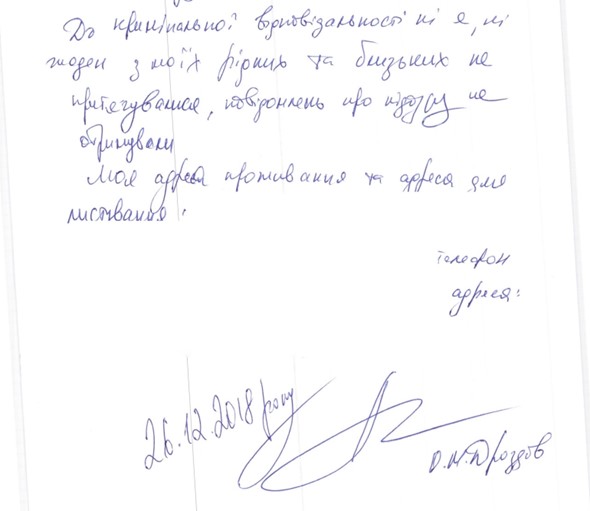 До кримінальної відповідальності ні я, ні
жоден з моїх рідних та близьких не
притягувався, повідомлень про підозру не
отримували
Моя адреса проживання та адреса для
листування:
телефон
адреса:
26.12.2018 року
О.М. Дроздов